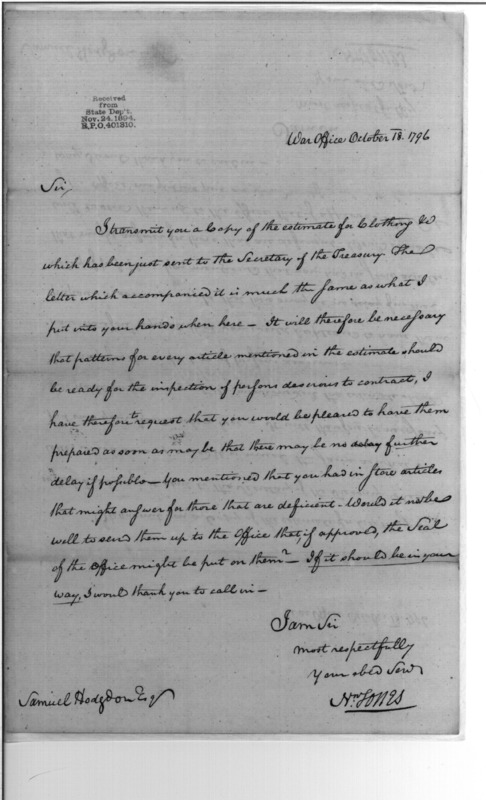 Received
from
State Dep't.
Nov. 24. 1894.
R.P.O. 401310.
War Office October 18. 1796
Sir,
I transmit you a Copy of the estimate for Clothing &c
which has been just sent to the Secretary of the Treasury. The
letter which accompanied it is much the same as what I
put into your hands when here – It will therefore be necessary
that patterns for every article mentioned in the estimate should
be ready for the inspection of persons desirous to contract, I
have therefore to request that you would be pleased to have them
prepared as soon as may be that there may be no delay further
delay if possible – You mentioned that you had in Store articles
that might answer for those that are deficient. Would it not be
well to send them up to the Office that, if approved, the Seal
of the Office might be put on them – If it should be in your
way, I would thank you to call in –
I am Sir
most respectfully
Your obed Serv
Jones
Samuel Hodgdon Esqr